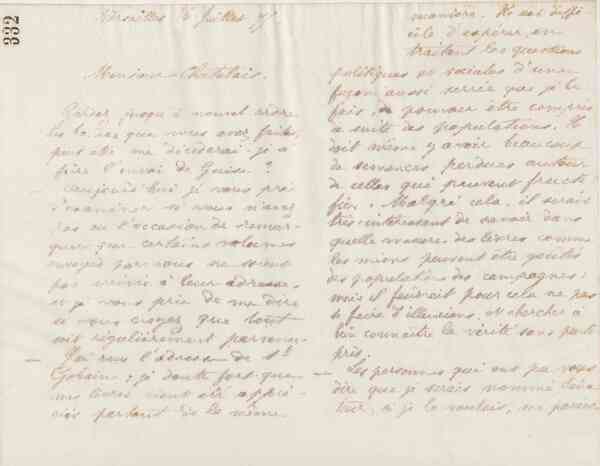 332
Versailles 6 Juillet 75
Monsieur Chatelais.
Gardez jusqu'à nouvel ordre
que vous avez faite,
peut être me déciderai-je à
faire l'envoi de Guise ?
Aujourd'hui je vous prie
d'examiner si vous n'avez
pas eu l'occasion de remar-
quer que certains volumes
envoyés par vous ne soient
pas arrivés à leur adresse,
et je vous prie de me dire
si vous croyez que tout
soit régulièrement parvenu.
— J'ai reçu l'adresse de St
Gobain ; je doute fort que
mes livres aient été appré-
ciés partout de la même
manière. Il est diffi
cile d'espérer, en
traitant les questions
politiques et sociales d'une
façon aussi serrée que je le
fais, de pouvoir être compris
de suite des populations. Il
doit même y avoir beaucoup
de semences perdues autour
de celles qui peuvent fructi-
fier. Malgré cela, il serait
très-intéressant de savoir dans
quelle mesure des livres comme
les miens peuvent être goûtés
des populations des campagnes ;
mais il faudrait pour cela ne pas
se faire d'illusions, et chercher à
bien connaître la vérité sans parti
pris.
— Les personnes qui ont pu vous
dire que je serais nommé
si je le voulais, ne